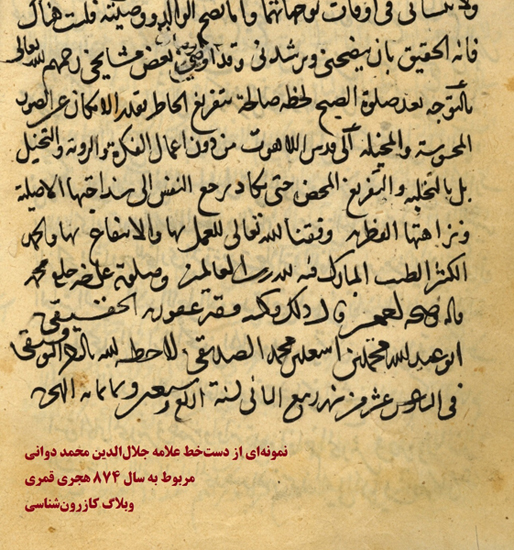 ولا تنساني في اوقات توجهاتهما واما نصح الوالد ووصيته قلت هناك
فانه الحقيق بان ينصحني ويرشدني وقد اوصى بعض مشايخي رحمهم الله تعالى
بالتوجه بعد صلوة الصبح لحظة صالحة بتفريغ الخاطر بقدر الامكان عن الصور
المحسوسة والمخيلة الى قدس اللاهوت من دون اعمال الفكرة والروية والتخيل
بل بالتخلية والتفريغ المحض حتى يكاد يرجع النفس الى سذاجتها الاصلية
ونزاهتها الفطرية وفقنا الله تعالى للعمل بها والانتفاع بها والحمد
الكثير الطيب المبارك فيه لله رب العالمين وصلوته على محمد
واله قال ذلك وكتبه فقير عفو الحقيقي
ابو عبد الله محمد بن اسعد بن محمد الصديقي لاحظه الله
في عشر من شهر ربيع الثاني لسنة اربع وسبعين وثمانمائة
نمونه‌ای از دست‌خط علامه جلال‌الدین محمد دوانی
مربوط به سال ۸۷۴ هجری قمری
وبلاگ کازرون‌شناسی